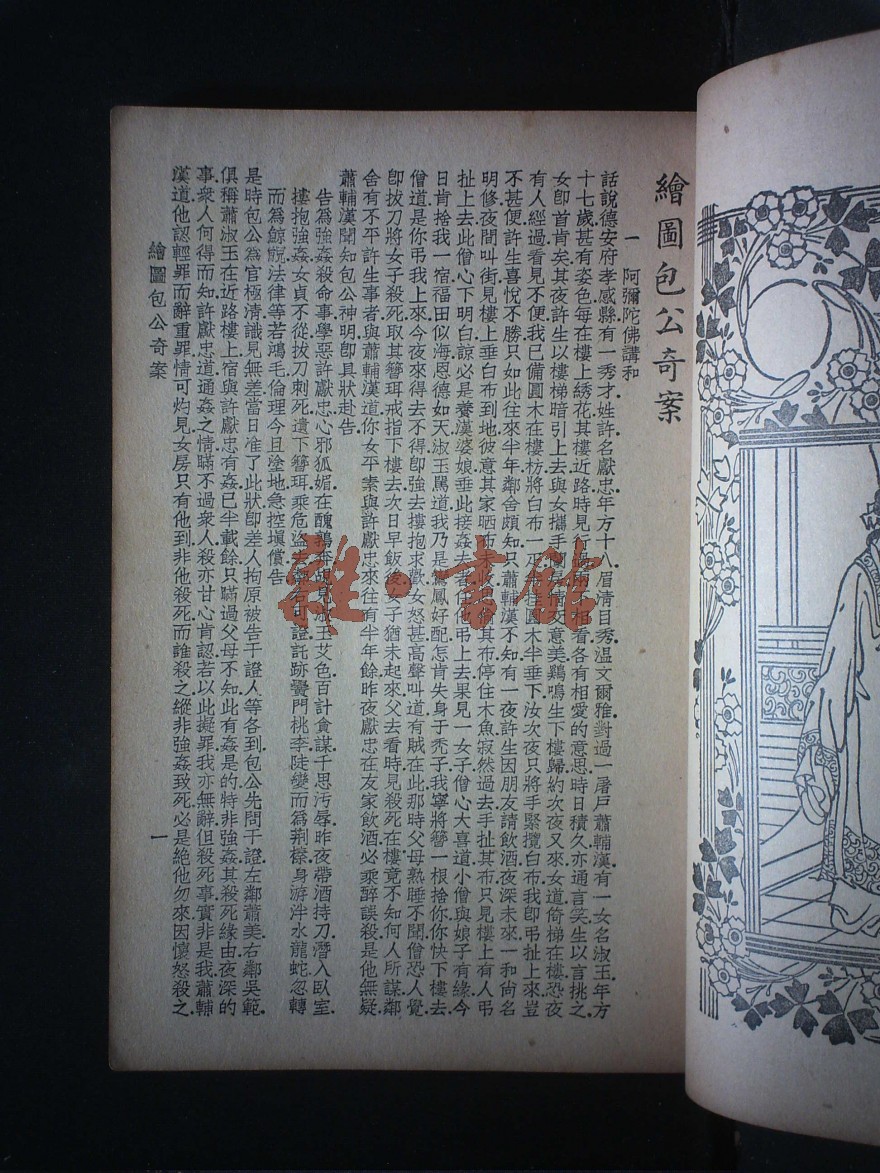 繪圖包公奇案
一 阿彌陀佛講和
話說德安府孝感縣有一秀才姓許名獻忠年方十八眉清目秀溫文爾雅對過一屠戶蕭輔漢有一女名淑玉年方
十七歲甚有姿色每在樓上綉花其樓近路時見 相看各有相愛的意思時日積久亦通言笑生以言挑之
女卽首肯矣其夜許生以樓梯暗引上去與女攜手 意美鷄鳴生下樓歸約次夜又來女道倚梯在樓恐夜
有人經過看見不便我已備圓木在樓枋將白布一 圓木半垂下汝次夜只將手緊攬白布我卽弔扯上來豈
不甚便許生喜悅不勝只如此往來半年鄰舍頗知只蕭輔漢不知有一夜許生因朋友請飲酒夜深未來一和尙名
明修夜間叫街見樓上垂白布到地彼意其家晒布未收 其布停住木魚寂然過去手扯其布只見樓上有人弔
扯上去此僧心下明白諒必是養漢婆娘垂此接姦 弔上去果見一女子僧心大喜道小僧與娘子有緣今
日肯捨我一宿福田似海恩德如天淑玉罵道我乃是 鳳好配怎肯失身于禿子我寧將簪一根捨你你快下樓去
僧道是你弔我上來今夜來得去不得卽強去摟抱求歡女怒甚高聲叫道有賊在此那時父母熟睡不聞僧恐人覺
卽拔刀將女子殺死取其簪珥戒指下樓去次日早飯後女子猶未起來父去看時見殺死在樓竟不知何人所謀鄰
舍有不平許生事者與蕭輔漢道你女平素與許獻忠來往有半年餘昨夜獻忠在友家飲酒必乘醉誤殺是他無疑
蕭輔漢聞知包公神明卽具狀赴告
告爲強姦殺命事學惡許獻忠心邪狐媚在醜鶉奔 淑玉艾色百計貪謀千思汚辱昨夜帶酒持刀潛入臥室
摟抱強姦女貞不從拔刀刺死遺下簪珥乘危盜去鄰右可證託跡黌門桃李陡變而爲荆榛身游泮水龍蛇忽轉
而爲鯨鯢法律等若鴻毛倫理今且塗地急控塡償告
是時包公爲官極清識見無差當日准了此狀卽差人拘原被告干證人等各到包公先問干證左鄰蕭美右鄰吳範
俱稱蕭淑玉在近路樓上宿與許獻忠有姦已半載餘只瞞過父母不知此有姦是的特非強姦其殺死緣由夜深的
事衆人何得而知許獻忠道通姦之情瞞不過衆人殺亦甘心肯認若以此擬罪我亦無辭但殺死事實非是我蕭輔
漢道他認輕罪而辭重罪情可灼見女房只有他到非他殺死而誰殺之縱非強姦致死必是絕他勿來因懷怒殺之
繪圖包公奇案
一
雜·書館